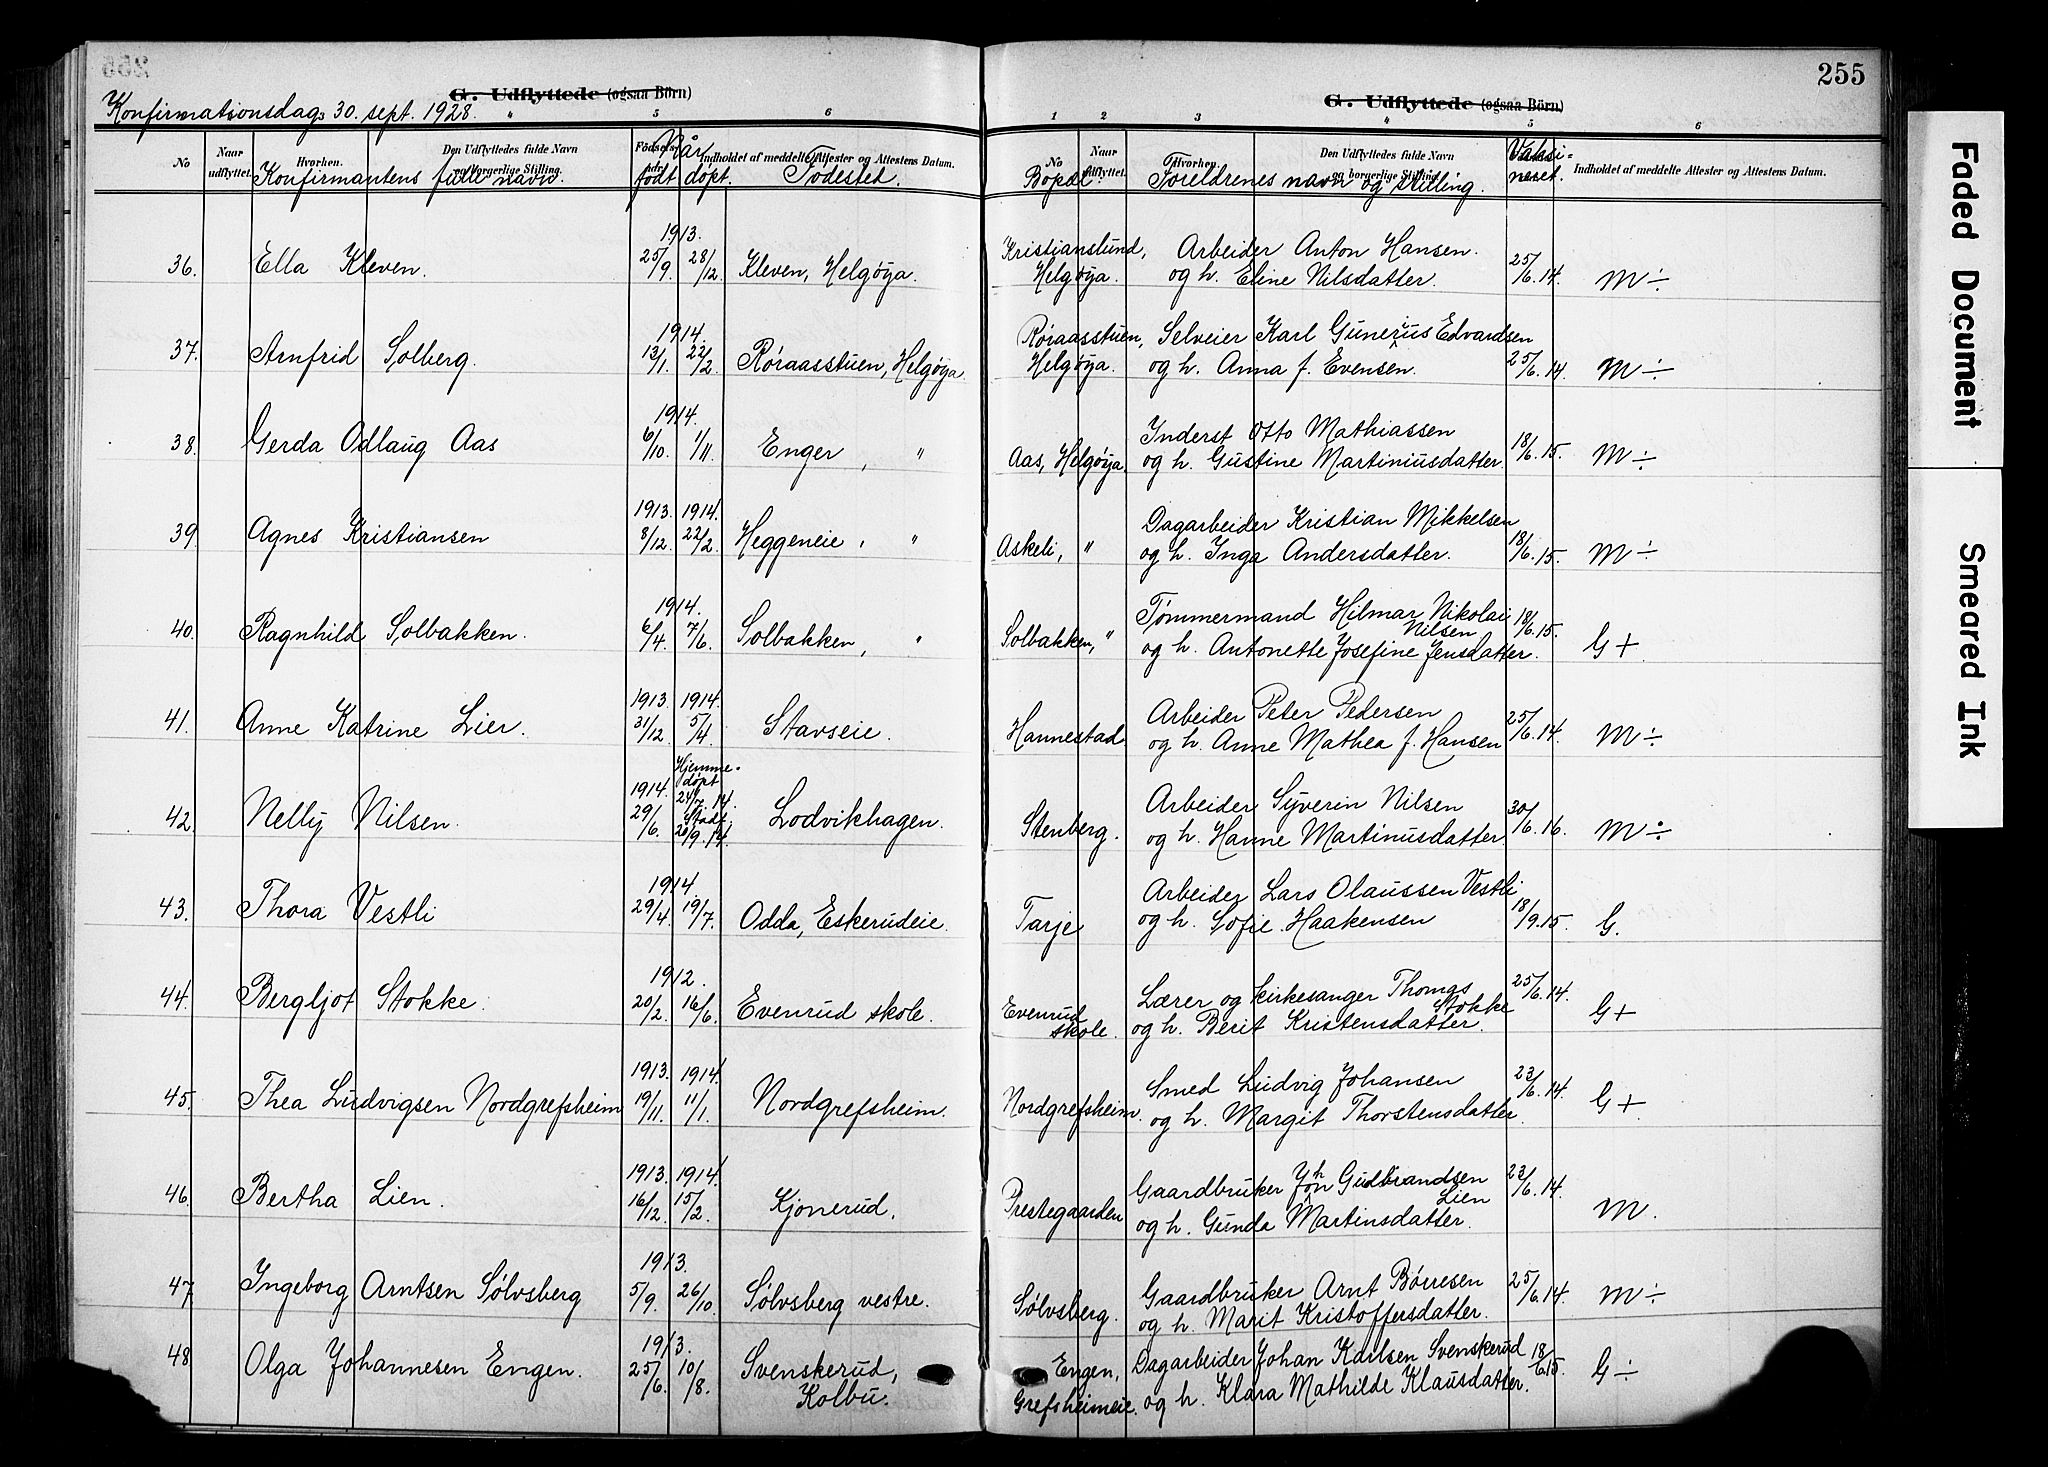 255
G. Udflyttede (ogsaa Börn)
Konfirmationsdag 30. sept. 1928.
No
Naar udflyttet.
Hvorhen.
Den Udflyttedes fulde Navn og borgerlige Stilling.
Indholdet af meddelte Attester og Attestens Datum.
Konfirmantens fulle navn.
Når
født døpt.
Fødested.
36. Ella Kleven. 1913. 25/9. 28/12 Kleven, Helgøya.
37. Arnfrid Solberg. 1914. 13/1. 22/2 Røraasstuen, Helgøya
38. Gerda Odlaug Aas 1914. 6/10 1/11. Enger, "
39. Agnes Kristiansen 1913. 8/12. 1914. 22/2 Heggeneie, "
40. Ragnhild Solbakken. 1914. 6/4. 7/6. Solbakken, "
41. Anne Katrine Lier. 1913. 31/12. 1914. 5/4 Stavseie.
42. Nelly Nilsen. 1914. 29/6. Hjemme-
døpt
24/7. 14.
Stadf.
20/9. 14. Lodvikhagen.
43. Thora Vestli 1914 29/4. 19/7. Odda, Eskerudeie.
44. Bergljot Stokke. 1912. 20/2. 16/6 Evenrud skole.
45. Thea Ludvigsen Nordgrefsheim 1913. 19/11. 1914. 11/1. Nordgrefsheim.
46. Bertha Lien. 1913. 16/12. 1914. 15/2. Kjonerud.
47. Ingeborg Arntsen Sølvsberg 1913. 5/9. 26/10. Sølvsberg vestre.
48. Olga Johannesen Engen. 1913. 25/6. 10/8. Svenskerud,
Kolbu.
255
G. Udflyttede (ogsaa Börn)
1 2 3 4 5 6
No
Naar udflyttet.
Hvorhen.
Den Udflyttedes fulde Navn og borgerlige Stilling.
Indholdet af meddelte Attester og Attestens Datum.
Bopæl.
Foreldrenes navn og stilling.
Vaksi-
neset.
Kristianslund, Arbeider Anton Hansen.
Helgøya. og h. Eline Nilsdatter. 25/6. 14. M ÷
Røraasstuen, Selveier Karl Gunerius Edvardsen
Helgøya. og h. Anna f. Evensen. 25/6. 14. M ÷
Inderst Otto Mathiassen
Aas, Helgøya og h. Gustine Martiniusdatter. 18/6. 15. M ÷
Dagarbeider Kristian Mikkelsen
Askeli, " og h. Inga Andersdatter. 18/6. 15. M ÷
Tømmermand Hilmar Nikolai
Nilsen
Solbakken, " og h. Antonette Josefine Jensdatter. 18/6. 15. G +
Arbeider Peter Pedersen
Hannestad og h. Anne Mathea f. Hansen 25/6. 14. M ÷
Arbeider Syverin Nilsen
Stenberg. og h. Hanne Martinusdatter 30/6. 16. M ÷
Arbeider Lars Olaussen Vestli
Tarje og h. Sofie Haakensen 18/9. 15. G.
Lærer og kirkesanger Thomas
Stokke
Evenrud
skole. og h. Berit Kristensdatter. 25/6. 14. G +
Smed Ludvig Johansen
Nordgrefsheim. og h. Margit Thorstensdatter. 23/6. 14. G +
Gaardbruker John Gudbrandsen
Lien
Prestegaarden og h. Gunda Martinsdatter. 23/6. 14. M.
Gaardbruker Arnt Børresen
Sølvsberg. og h. Marit Kristoffersdatter. 25/6. 14 M ÷
Engen, Dagarbeider Johan Karlsen Svenskerud
Grefsheimeie. og h. Klara Mathilde Klausdatter. 18/6 15. G ÷
Faded Document
Smeared Ink